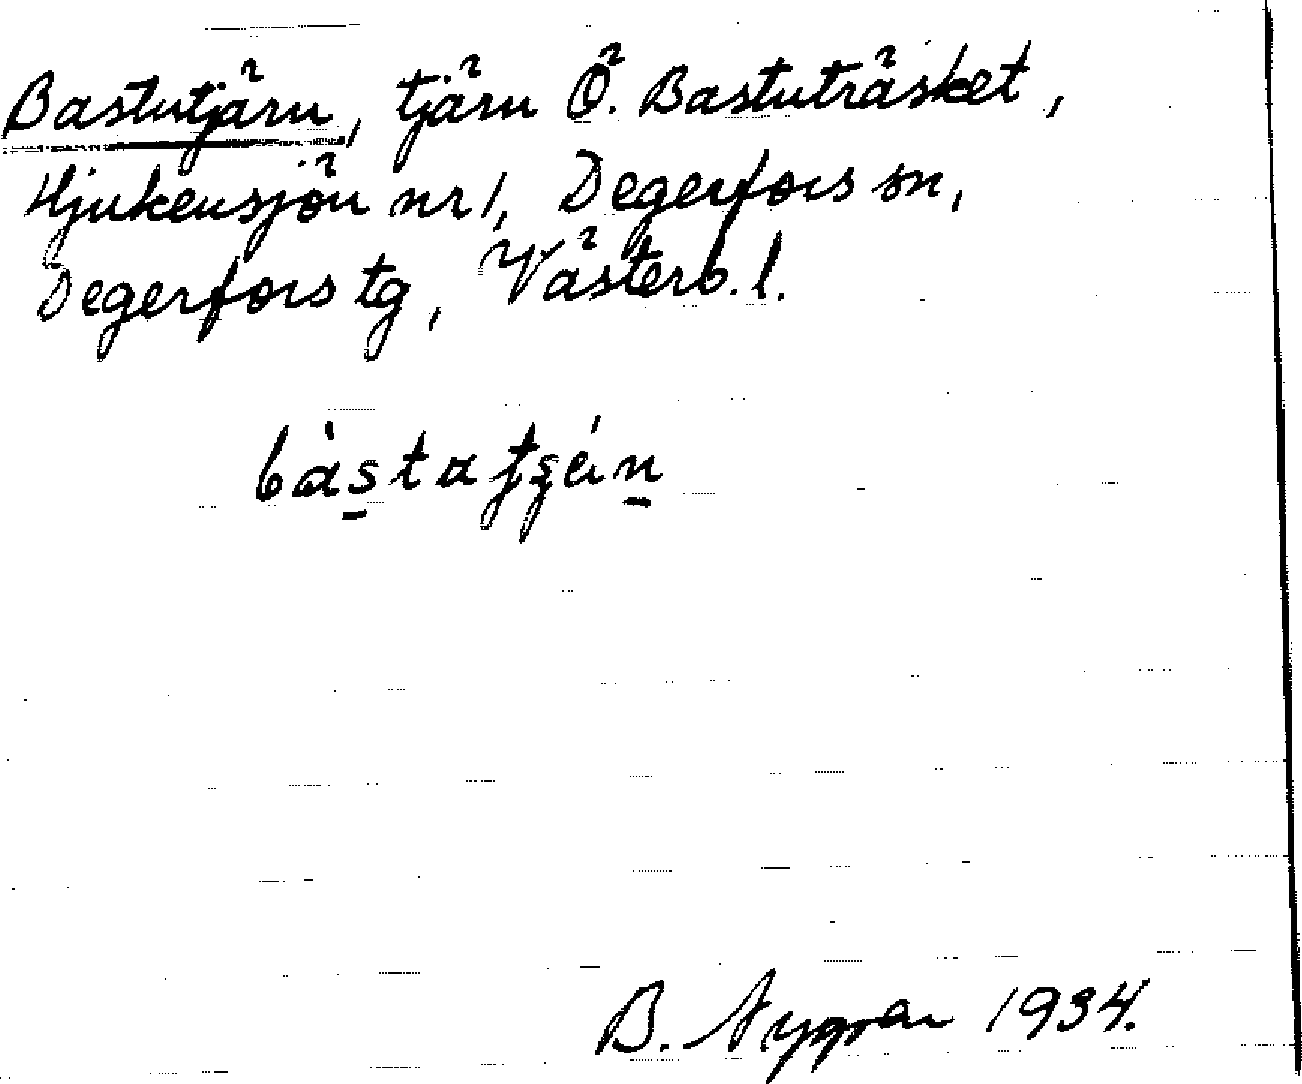 Bastutjärn, tjärn Ö. Bastuträsket,
Hjukensjön nr 1, Degerfors sn,
Degerfors tg, Västerb. l.
bàs̱tatʃʂán̠
B. Nygren 1934.